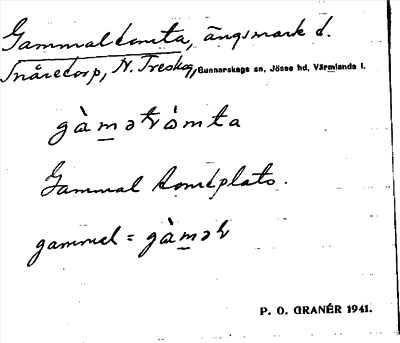 Gammaltomta, ängsmark d.
Snåretorp, N. Treskog, Gunnarskogs sn, Jösse hd, Värmlands l.
gàmətòmta
Gammal tomtplats.
gammel = gàməl
P. O. GRANÉR 1941.